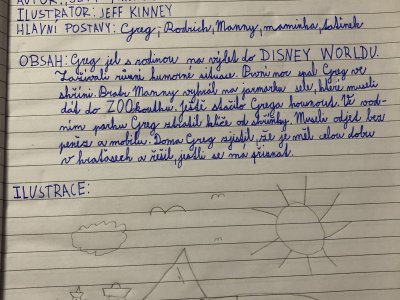 ILUSTRÁTOR: JEFF KINNEY
HLAVNÍ POSTAVY: Greg, Rodrick, Manny, maminka, tatínek
OBSAH: Greg jel s rodinou na výlet do DISNEY WORLDU.
Zažívali různé humorné situace. První noc spal Greg ve
skříni. Bratr Manny vyhrál na jarmarku sele, které museli
dát do ZOOkoutku. Ještě stačilo Grega kousnout. Ve vod-
ním parku Greg ztratil klíče od skříňky. Museli odjet bez
peněz a mobilu. Doma Greg zjistil, že je měl celou dobu
v kraťasech a řešil, jestli se má přiznat.
ILUSTRACE: